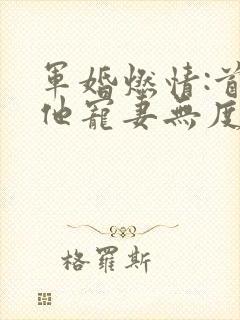 軍婚燃情:首
他寵妻無度
格羅斯